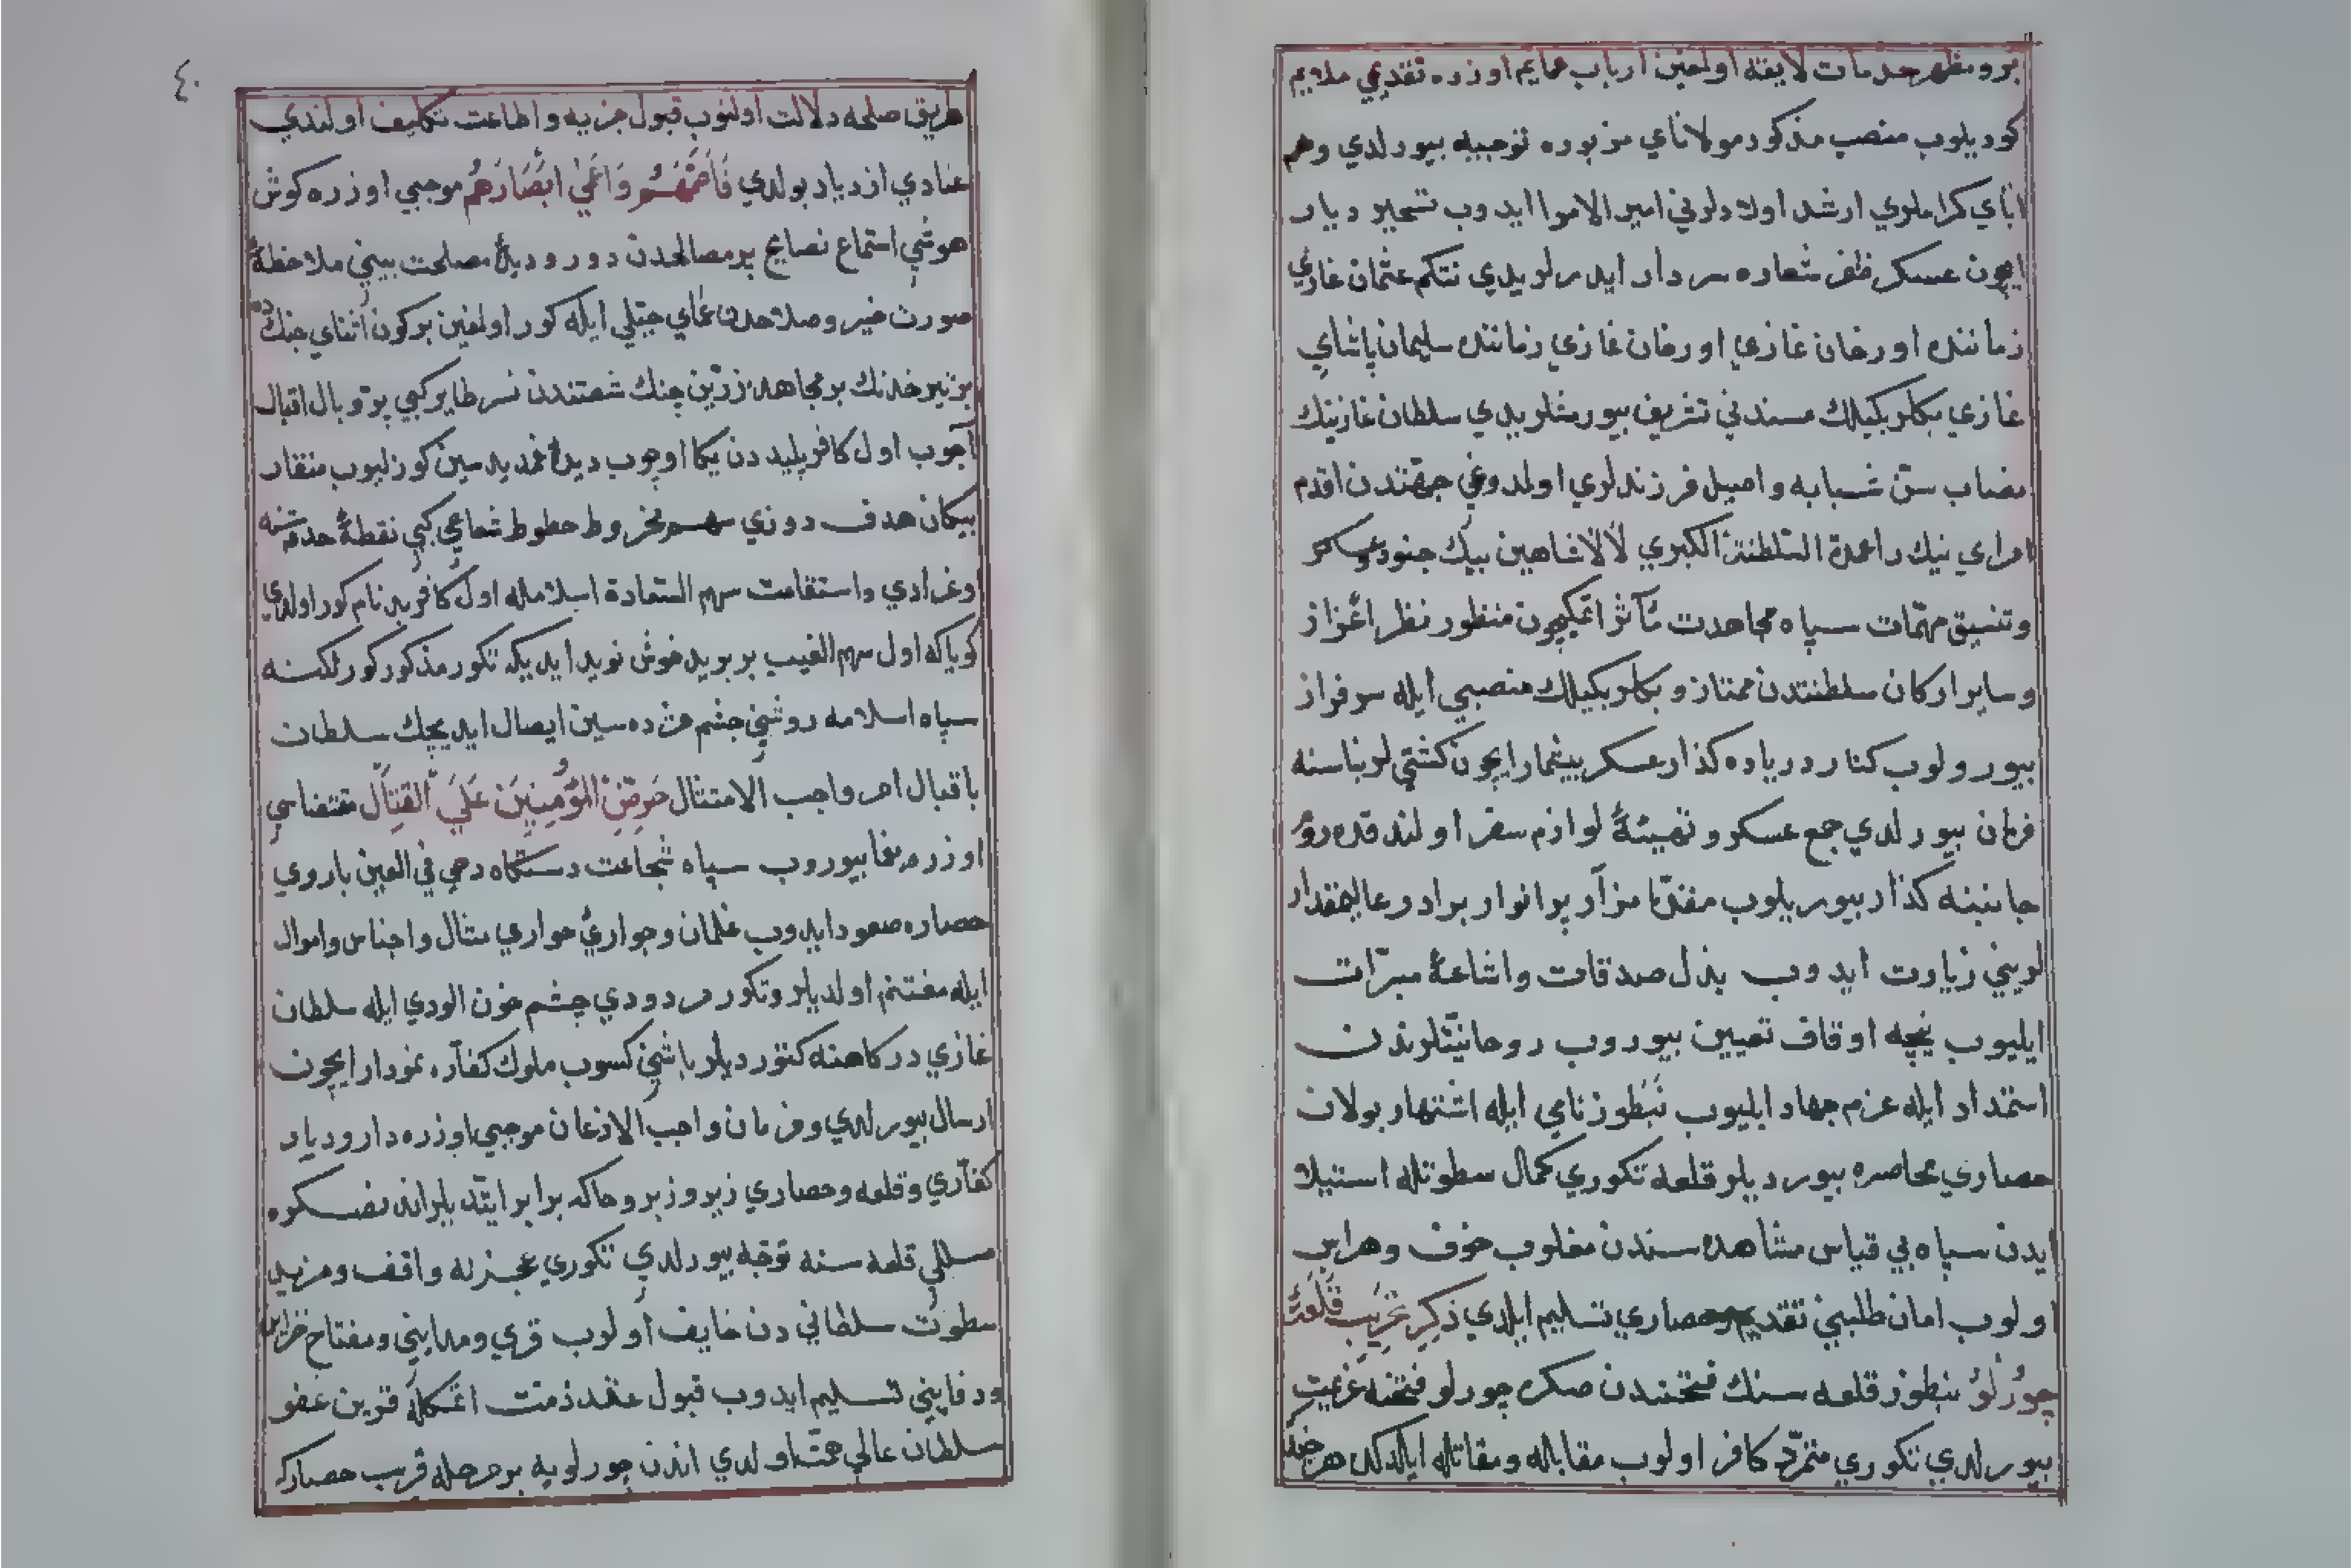 برو مظهر خدمات لايقه اولمغين ارباب عمايم اوزره تقديمي ملايم
كوريلوب منصب مذكور مولاناي مزبوره توجيه بيورلدي وهم
اباي كراملري ارشد اولادلرني امير الامرا ايدوب تسخير ديار
ايچون عسكر ظفر شعاره سردار ايدرلريدي نتكم عثمان غازي
زماننده اورخان غازي اورخان غازي زماننده سليمان پاشاي
غازي بكلربكيلك مسندني تشريف بيورمشلريدي سلطان غازينك
نصاب سن شبابه واصيل فرزندلري اولمدوغي جهتندن اقدم
امراي نيك راعمدة السلطنة الكبري لالا شاهين بيك جنود وعساكر
وتنسيق مهمات سپاه مجاهدت مآثر اتمكيچون منظور نظر اعزاز
وساير اركان سلطنتدن ممتاز وبكلربكيلك منصبي ايله سرفراز
بيورولوب كنار درياده كذار عسكر بيشمار ايچون كشتي لر بناسنه
فرمان بيورلدي جمع عسكر و تهيئهٔ لوازم سفر اولندقده روم
جانبنه كذار بيوريلوب مقدما مزار پر انوار برادر عاليمقدار
لريني زيارت ايدوب بذل صدقات واشاعهٔ مبرات
ايليوب نيچه اوقاف تعيين بيوروب روحانيتلرندن
استمداد ايله عزم جهاد ايليوب نبطوز نامي ايله اشتهار بولان
حصاري محاصره بيورديلر قلعه تكوري كمال سطوتله استيلا
ايدن سپاه بي قياس مشاهده سندن مغلوب خوف وهراس
اولوب امان طلبني تقديم وحصاري تسليم ايلدي ذكر غزيب قلعهٔ
چورلو نبطوز قلعه سنك فتحندن صكره چورلو فتحنه عزيمت
بيورلدي تكوري متمرد كافر اولوب مقابله ومقاتله ايلدكه هرچند
طريق صلحه دلالت اولنوب قبول جزيه واطاعت تكليف اولندي
عنادي ازدياد بولدي فَاَصَمَّهُمْ وَاَعْمَىٰ اَبْصَارَهُمْ موجبي اوزره كوش
هوشي استماع نصايح پرمصالحدن دور وديدهٔ مصلحت بيني ملاحظهٔ
صورت خير وصلاحدن عماي جبلي ايله كور اولمغين بر كون اثناي جنكده
بر تير خدنك بر مجاهد زرين چنك شصتندن نسر طاير كبي پر و بال اقبال
آچوب اول كافر پليددن يكا اوچوب ديدهٔ غمديده سين كوزليوب منقار
پيكان هدف دوزي سهم مخروط خطوط شعاعي كبي نقطهٔ حدقه سنه
وغرادي واستقامت سهم السعادة اسلامله اول كافر بد نام كور اولدي
كوياكه اول سهم الغيب بر بريد خوش نويد ايديكه تكور مذكور كورلكنه
سپاه اسلامه روشني چشم مژده سين ايصال ايديجك سلطان
با قبال امر واجب الامتثال حَرِّضِ الْمُؤْمِنِينَ عَلَى الْقِتَالِ مقتضاسي
اوزره يغما بيوروب سپاه شجاعت دستكاه دحي في الحين باروي
حصاره صعود ايدوب غلمان وجواريء حواري مثال واجناس واموال
ايله مغتنم اولديلر وتكور مردودي چشم خون الودي ايله سلطان
غازي دركاهنه كتورديلر باشني كسوب ملوك كفاره نمودار ايچون
ارسال بيورلدي وفرمان واجب الاذعان موجبي اوزره دار وديار
كفاري وقلعه وحصاري زير وزبر وخاكه برابر ايتديلر اندنصكره
مسللي قلعه سنه توجه بيورلدي تكوري عجزنه واقف ومزيد
سطوت سلطاني دن خايف اولوب قري ومدايني ومفتاح خزاين
ودفايني تسليم ايدوب قبول عقد ذمت اتمكله قرين عفو
سلطان عالي همت اولدي اندن چورلويه بر مرحله قريب حصاركه
٤٠